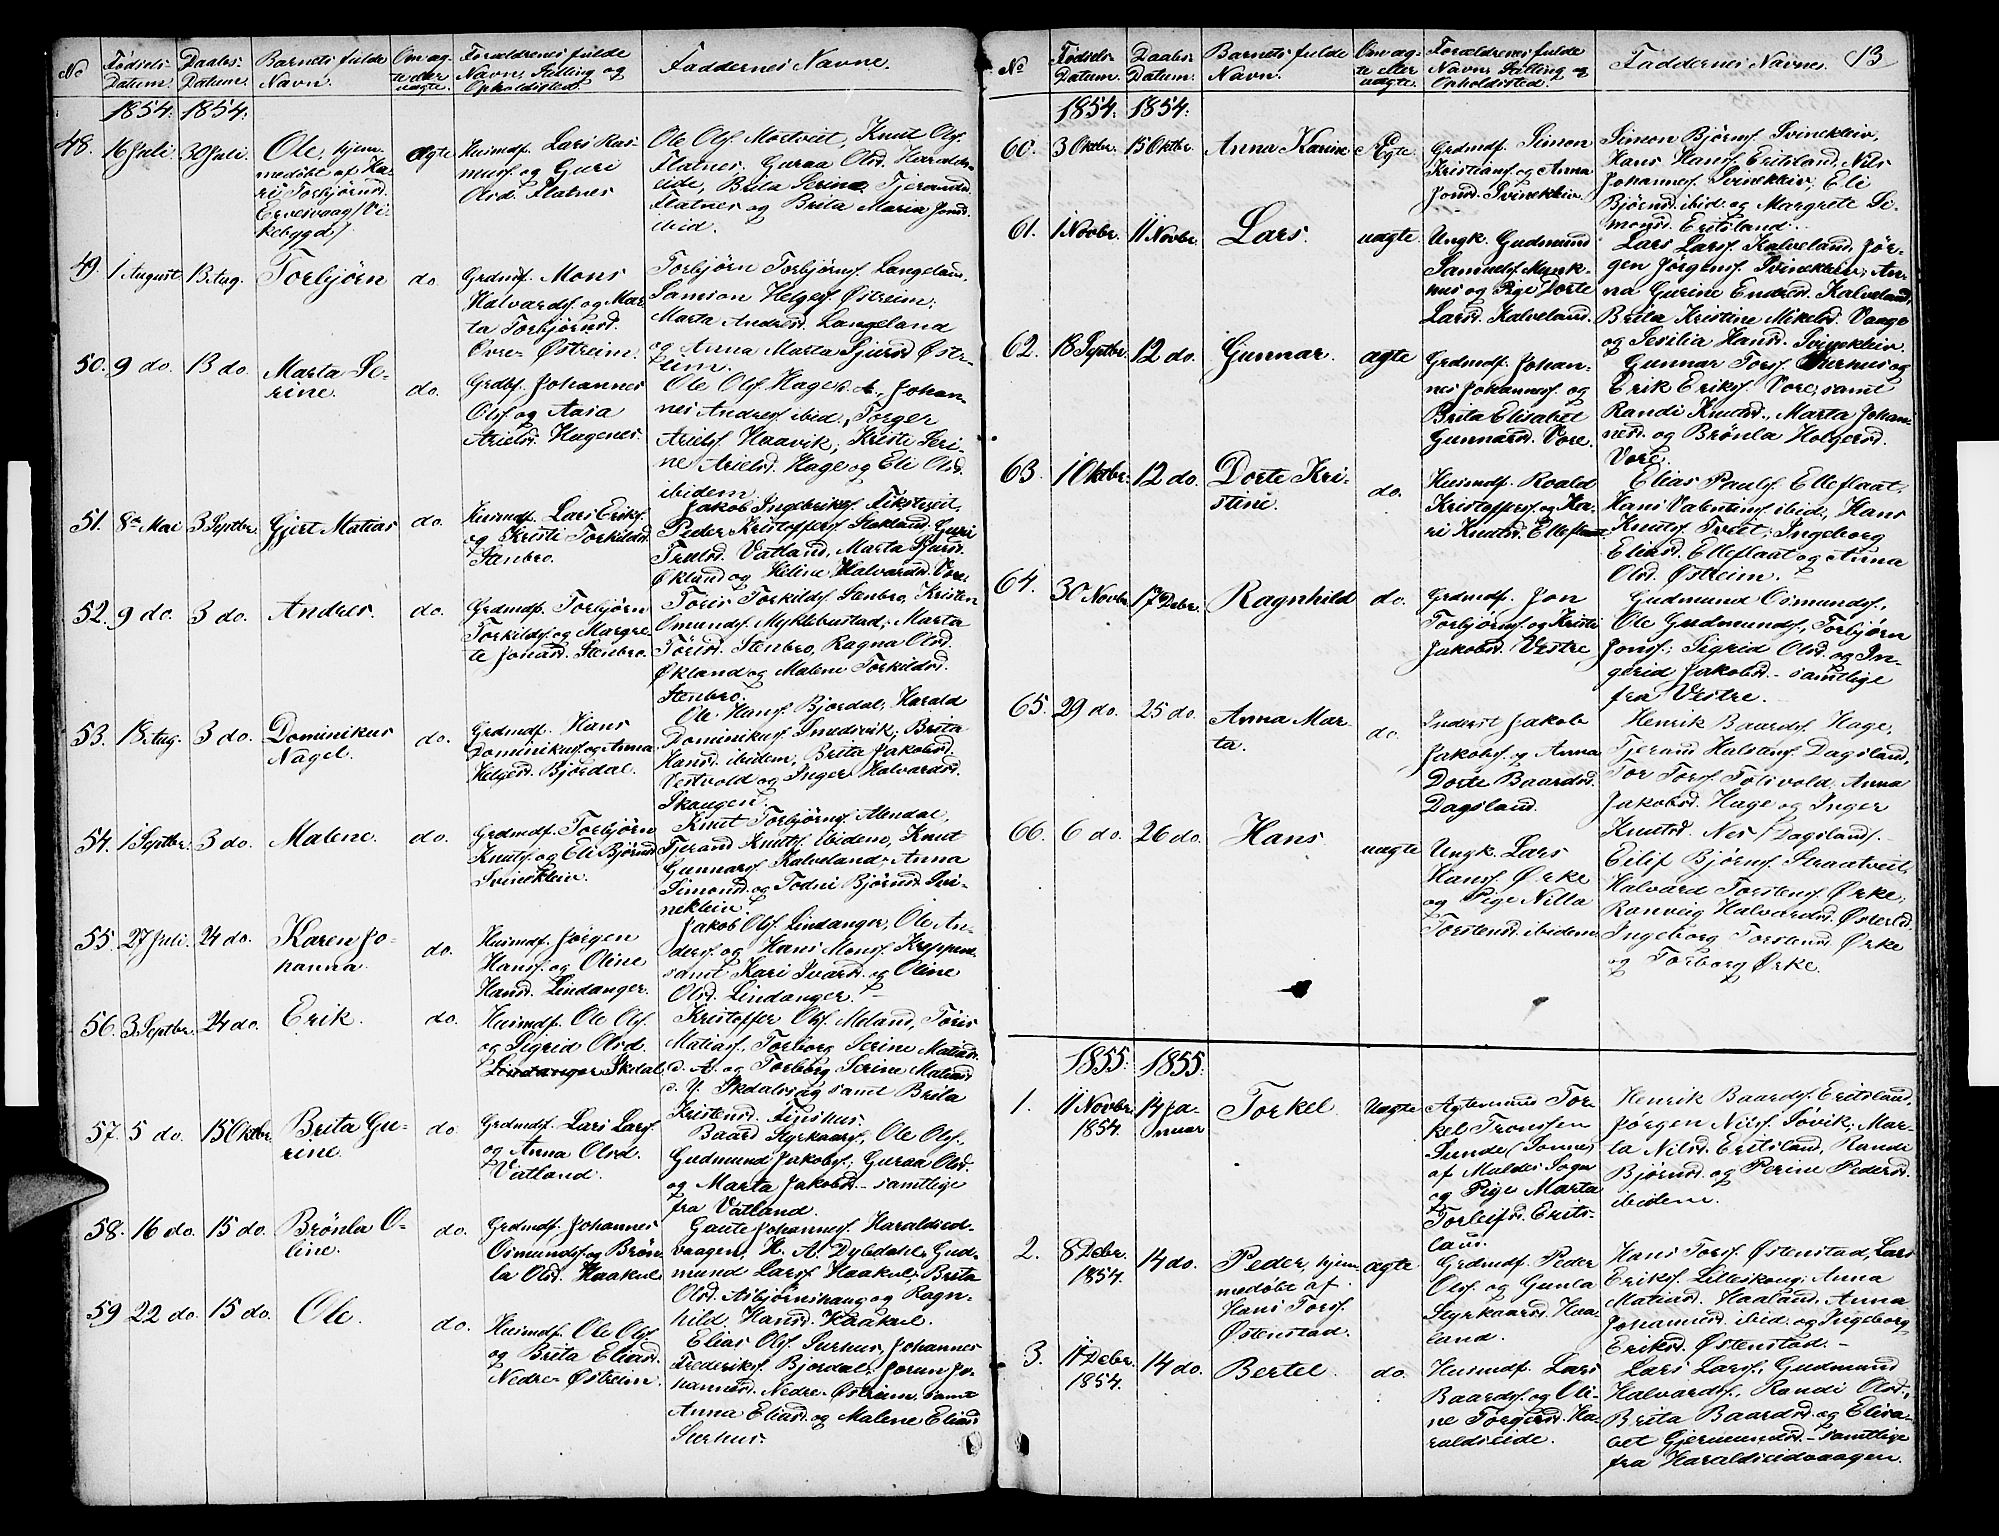 No
Fødsels-
Datum.
Daabs-
Datum.
Barnets fulde
Navn.
Om æg-
te eller
uægte.
Forældrenes fulde
Navn, Stilling og
Opholdssted.
Faddernes Navne.
1854. 1854.
48. 16 Juli 30 Juli
Ole, hjem-
medøbt af Ka-
ri Torbjørnsd.
(Vi-
kebygd)
ægte
Husmdf. Lars Ras-
musf. og Guri
Olsd. Flatnes
Ole Olsf. Mortveit, Knut Olsf.
Flatnes, Guraa Olsd. Haralds-
eide, Brita Serine Tjerandsd.
Flatnes og Brita Maria Jonsd.
ibid.
49. 1 August 13 Aug. Torbjörn do.
Grdmdf. Mons
Halvardsf. og Mar-
ta Torbjörnsd.
Övre-Østreim.
Torbjörn Torbjörnsf. Langeland,
Samson Helgesf. Østreim,
Marta Andersd. Langeland
og Anna Marta Sjursd. Øst-
reim.
50. 9 do. 13 do.
Marta Se-
rine.
do.
Grdbf. Johannes
Olsf. og Aasa
Arielsd. Hagenes.
Ole Olsf. Hage, Johan-
nes Andersf. ibid., Torger
Arielsf. Haavik, Kristi Seri-
ne Arielsd. Hage og Eli Olsd.
ibidem.
51. 8de Mai 3 Septbr. Gjert Matias do.
Husmdf. Lars Eriksf.
og Kristi Torkildsd.
Stenbro.
Jakob Ingebrigtsf. Tikstveit,
Peder Kristoffersf. Stokland, Guri
Trulsd. Vatland, Marta Sjursd.
Økland og Seline Halvardsd. Vore.
52. 9 do. 3 do. Andres. do.
Grdmdf. Torbjörn
Torkildsf. og Margre-
te Jonasd. Stenbro.
Töris Torkildsf. Stenbro, Kristen
Omundsf. Myklebustad, Marta
Törisd. Stenbro, Ragna Olsd.
Økland og Malene Torkildsd.
Stenbro.
53. 18 Aug. 3 do.
Dominikus
Nagel.
do.
Grdmdf. Hans
Dominikusf. og Anna
Helgesd. Bjordal.
Ole Hansf. Bjordal, Harald
Dominikusf. Smedsvik, Brita
Hansd. ibidem, Brita Jakobsd.
Vestvold og Inger Halvardsd.
Skaugen.
54. 1 Septbr. 3 do. Malene. do.
Grdmdf. Torbjörn
Knutsf. og Eli Björnsd.
Svineklein.
Knut Torbjörnsf. Alendal,
Tjerand Knutsf. ibidem, Knut
Gunnarsf. Kalveland, Anna
Simonsd. og Todni Björnsd. Svi-
neklein.
55. 27 Juli. 24 do.
Karen Jo-
hanna.
do.
Husmdf. Jørgen
Hansf. og Oline
Hansd. Lindanger.
Jakob Olsf. Lindanger, Ole An-
dersf. og Hans Monsf. Kroppene,
samt Kari Ivarsd. og Oline
Olsd. Lindanger.
56. 3 Septbr. 24 do. Erik. do.
Husmdf. Ole Olsf.
og Sigrid Olsd.
Lindanger Skdal.
Kristoffer Olsf. Meland, Töris
Matiasf., Torborg Serine Matiasd.
d. Æ. og Torborg Serine Matiasd.
d. Y. Skdalsvaag samt Brita
Kristensd. Tinshus.
57. 5 do. 15 Oktbr.
Brita Gu-
rine.
do.
Grdmdf. Lars Larsf.
og Anna Olsd.
Vatland.
Baard Styrkaarsf., Ole Olsf.,
Gudmund Jakobsf., Guraa Olsd.
og Marta Jakobsd. – samtlige
fra Vatland.
58. 16 do. 15 do.
Brönla O-
line.
do.
Grdmdf. Johannes
Osmundsf. og Brön-
la Olsd. Haakul.
Gaute Johannesf. Haraldseid-
vaagen, H. A. Dybdahl, Gud-
mund Larsf. Haakul, Brita
Olsd. Asbjörnshaug og Ragn-
hild Hansd. Haakul.
59 22 do. 15 do. Ole. do.
Husmdf. Ole Olsf.
og Brita Eliasd.
Nedre-Østreim.
Elias Olsf. Surhus, Johannes
Frederiksf. Bjordal, Jorun Jo-
hannesd. Nedre-Østreim, samt
Anna Eliasd. og Malene Eliasd.
Surhus.
13
No
Födsels-
Datum.
Daabs-
Datum.
Barnets fulde
Navn.
Om æg-
te eller
uægte.
Forældrenes fulde
Navn, Stilling og
Opholdssted.
Faddernes Navne.
1854. 1854.
60. 3 Oktbr. 15 Oktbr. Anna Karine Ægte
Grdmdf. Simon
Kristiansf. og Anna
Jonsd. Svineklein.
Simon Björnsf. Svineklein,
Hans Hansf. Eritsland, Nils
Johannesf. Svineklein, Eli
Björnsd. ibid. og Margrete Si-
monsd. Eritsland.
61. 1 Novbr. 11 Novbr. Lars. uægte.
Ungk. Gudmund
Samuelsf. Munk-
hus og Pige Dorte
Larsd. Kalveland.
Lars Larsf. Kalveland, Jör-
gen Jörgensf. Svineklein, An-
na Gurine Endresd. Kalveland,
Brita Kristine Mikelsd. Vaage
og Sesilia Hansd. Svineklein.
62. 18 Septbr. 12 do. Gunnar. ægte
Grdmdf. Johan-
nes Johannesf. og
Brita Elisabet
Gunnarsd. Vore.
Gunnar Torsf. Surhus og
Erik Eriksf. Vore, samt
Randi Knutsd., Marta Johan-
nesd. og Brönla Holgersd.
Vore.
63. 1 Oktbr. 12 do.
Dorte Kri-
stine.
do.
Husmdf. Roald
Kristoffersf. og Ka-
ri Knutsd. Elleflaat
Elias Paulsf. Elleflaat,
Hans Valentinsf. ibid., Hans
Knutsf. Tvet, Ingeborg
Eliasd. Elleflaat og Anna
Olsd. Østreim.
64. 30 Novbr. 17de Debr. Ragnhild do.
Grdmdf. Jon
Torbjörnsf. og Kristi
Jakobsd. Vestre
Gudmund Osmundsf.,
Ole Gudmundsf., Torbjörn
Jonsf., Sigrid Olsd. og In-
gerid Jakobsd. – samtlige
fra Vestre.
65. 29 do. 25 do.
Anna Mar-
ta.
do.
Inderst Jakob
Jakobsf. og Anna
Dorte Baardsd.
Dagsland.
Henrik Baardsf. Hage,
Tjeran Halstensf. Dagsland,
Tor Torsf. Tolivold, Anna
Jakobsd. Hage og Inger
Knutsd. Nes (Dagsland).
66. 6 do. 26 do. Hans uægte
Ungk. Lars
Hansf. Ørke
og Pige Nilla
Torstensd. ibidem.
Eilif Björnsf. Straatveit,
Halvard Torstensf. Ørke,
Ranveig Halvardsd. Østerld.
Ingeborg Torstensd. Ørke
og Torborg Ørke.
1855. 1855.
1.
11 Novbr.
1854.
14 Ja-
nuar
Torkel Uægte
Torkel Tronssen
Sunde (Sonne)
og Pige Marta
Torleifsd. Erits-
land.
Henrik Baardsf. Eritsland,
Jörgen Nilsf. Søvik, Mar-
ta Nilsd. Eritsland, Randi
Björnsd. og Perine Pedersd.
ibidem.
2.
8 Debr.
1854.
14 do.
Peder, hjem-
medøbt af
Hans Torsf.
Østenstad.
ægte
Grdmdf. Peder
Olsf. og Gunla
Styrkaarsd. Haa-
land.
Hans Torsf. Østenstad, Lars
Eriksf. Lilleskoug, Anna
Matiasd. Haaland, Anna
Johannesd. ibid. og Ingeborg
Eriksd. Østenstad.
3.
11 Debr.
1854.
14 do. Bertel. do.
Husmdf. Lars
Baardsf. og Oli-
ne Torgersd. Ha-
raldseide.
Lars Larsf., Gudmund
Halvardsf., Randi Olsd.,
Brita Baardsd. og Elisa-
bet Gjermundsd. – samtlige
fra Haraldseidvaagen.